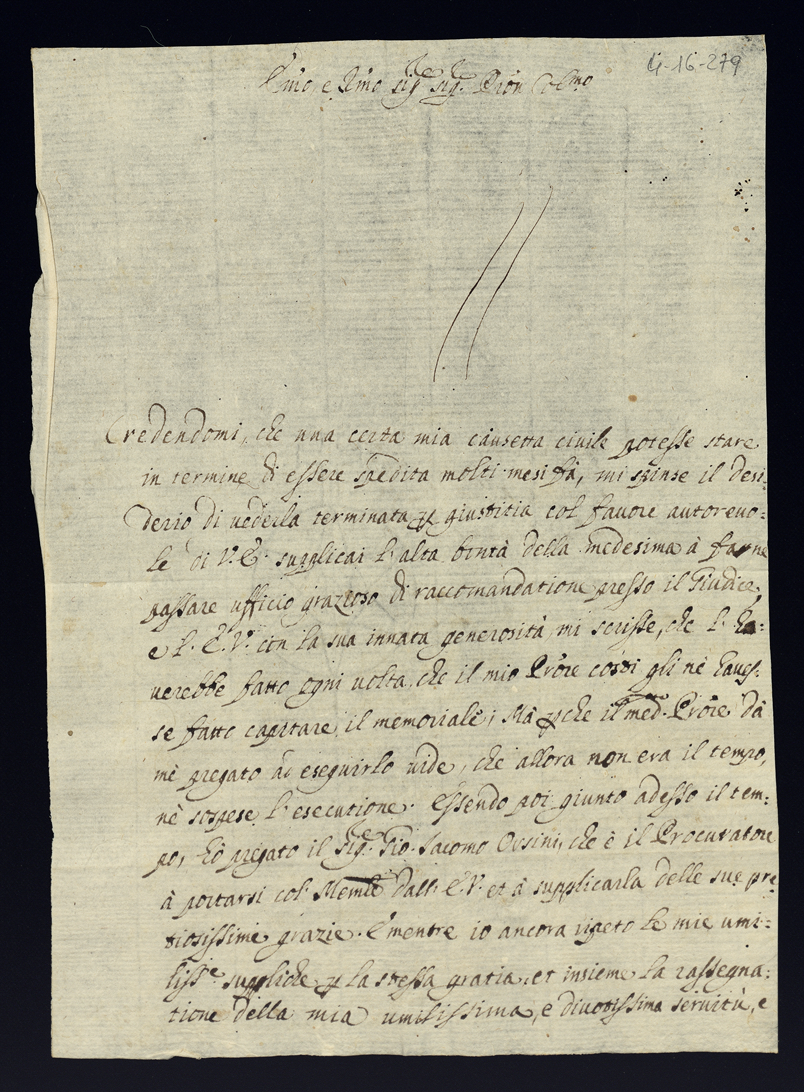 4-16-279
Emo, e Rmo Sigre Sigr. Pron Colmo
Credendomi, che una certa mia causetta civile potesse stare
in termine di essere spedita molti mesi fà, mi spinse il desi-
derio di vederla terminata p giustitia col favore autorevo=
le di V. E. supplicai l'alta bontà della medesima à farne
passare ufficio grazioso di raccomandatione presso il Giudice,
e l'E. V. con la sua innata generosità mi scrisse, che l'ha=
verebbe fatto ogni volta, che il mio Prore costi gli nè haves-
se fatto capitare il memoriale; Mà pche il med. Prore dà
mè pregato ad eseguirlo vide, che allora non era il tempo,
nè sospese l'esecutione. Essendo poi giunto adesso il tem=
po, hò pregato il Sigre Gio. Iacomo Orsini, che è il Procuratore
à portarsi col Memle dall'E. V. et à supplicarla delle sue pre
tiosissime grazie. E mentre io ancora ripeto le mie umi=
lisse suppliche p la stessa gratia, et insieme la rassegna=
tione della mia umilissima, e divotissima servitù, e